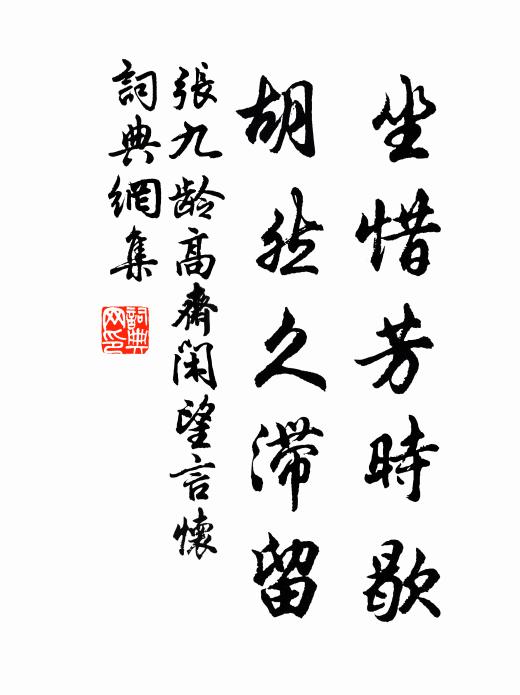 坐惜芳時歇
胡然久滞留
張九龄高齋閑望言懷
詞典網集
詞典网印